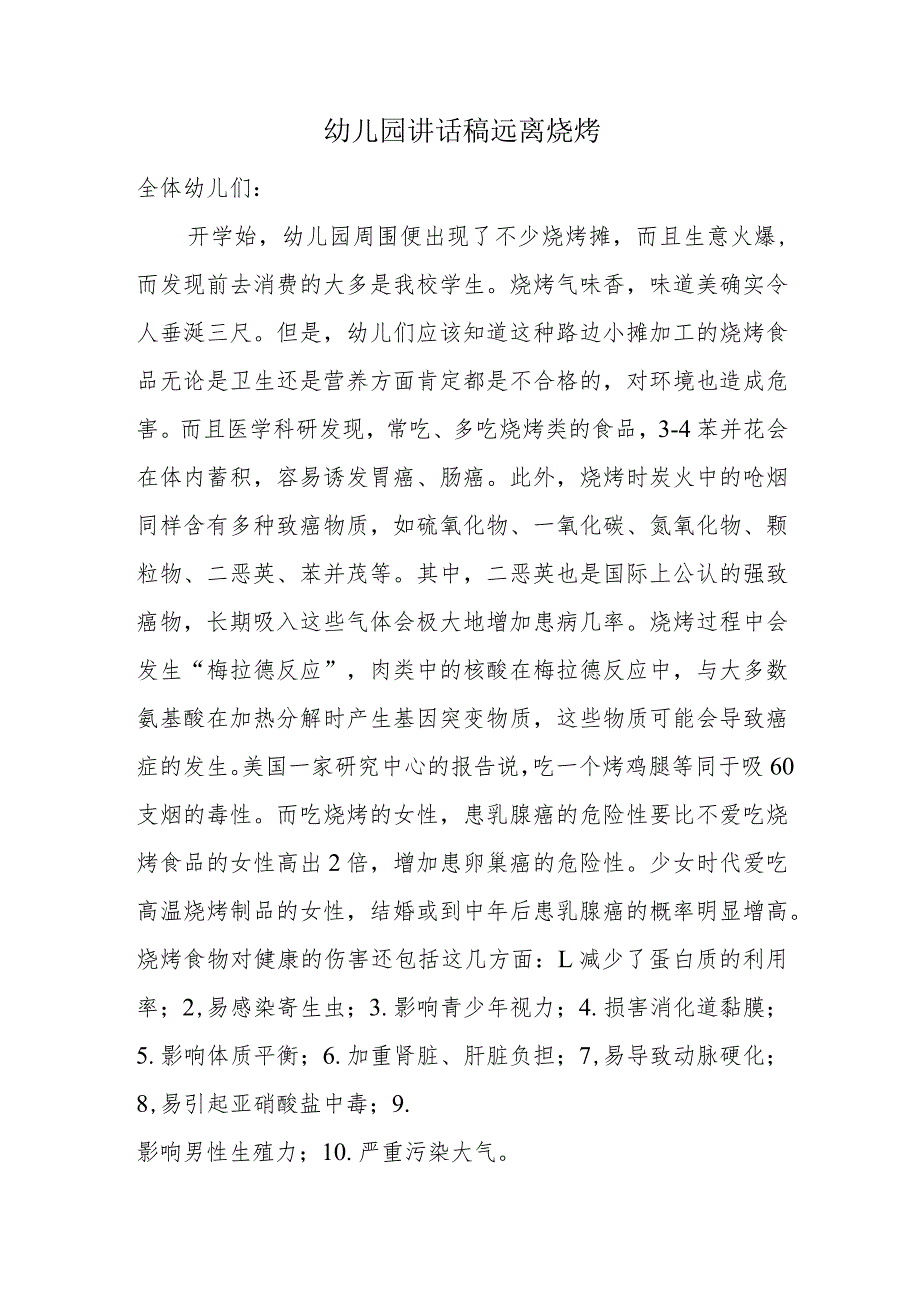 幼儿园讲话稿远离烧烤
全体幼儿们：
开学始，幼儿园周围便出现了不少烧烤摊，而且生意火爆，
而发现前去消费的大多是我校学生。烧烤气味香，味道美确实令
人垂涎三尺。但是，幼儿们应该知道这种路边小摊加工的烧烤食
品无论是卫生还是营养方面肯定都是不合格的，对环境也造成危
害。而且医学科研发现，常吃、多吃烧烤类的食品，3-4苯并花会
在体内蓄积，容易诱发胃癌、肠癌。此外，烧烤时炭火中的呛烟
同样含有多种致癌物质，如硫氧化物、一氧化碳、氮氧化物、颗
粒物、二恶英、苯并茂等。其中，二恶英也是国际上公认的强致
癌物，长期吸入这些气体会极大地增加患病几率。烧烤过程中会
发生“梅拉德反应”，肉类中的核酸在梅拉德反应中，与大多数
氨基酸在加热分解时产生基因突变物质，这些物质可能会导致癌
症的发生。美国一家研究中心的报告说，吃一个烤鸡腿等同于吸60
支烟的毒性。而吃烧烤的女性，患乳腺癌的危险性要比不爱吃烧
烤食品的女性高出2倍，增加患卵巢癌的危险性。少女时代爱吃
高温烧烤制品的女性，结婚或到中年后患乳腺癌的概率明显增高。
烧烤食物对健康的伤害还包括这几方面：L减少了蛋白质的利用
率；2,易感染寄生虫；3.影响青少年视力；4.损害消化道黏膜；
5.影响体质平衡；6.加重肾脏、肝脏负担；7,易导致动脉硬化；
8,易引起亚硝酸盐中毒；9.
影响男性生殖力；10.严重污染大气。